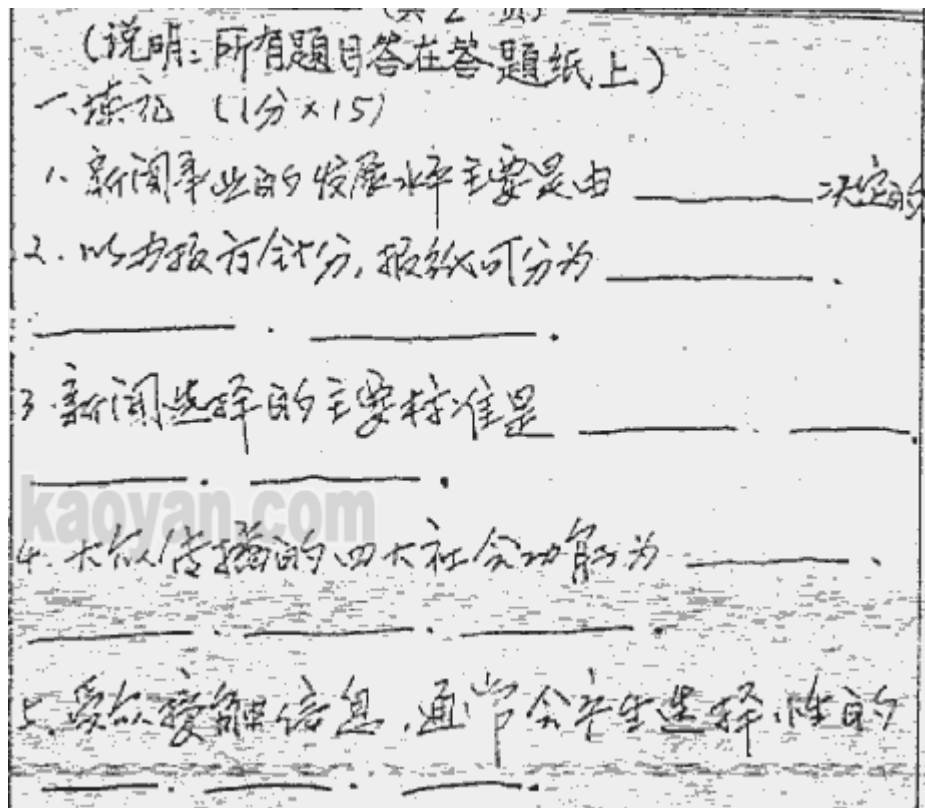 (共 2 页)
(说明:所有题目答在答题纸上)
一、填充 (1分×15)
1、新闻事业的发展水平主要是由 ______ 决定的
2、以办报方针分,报纸可分为 ______、
______、______.
3、新闻选择的主要标准是 ______、______、
______、______.
kaoyan.com
4、大众传播的四大社会功能为 ______、
______、______、______.
5、受众接触信息,通常会产生选择性的
______、______、______.